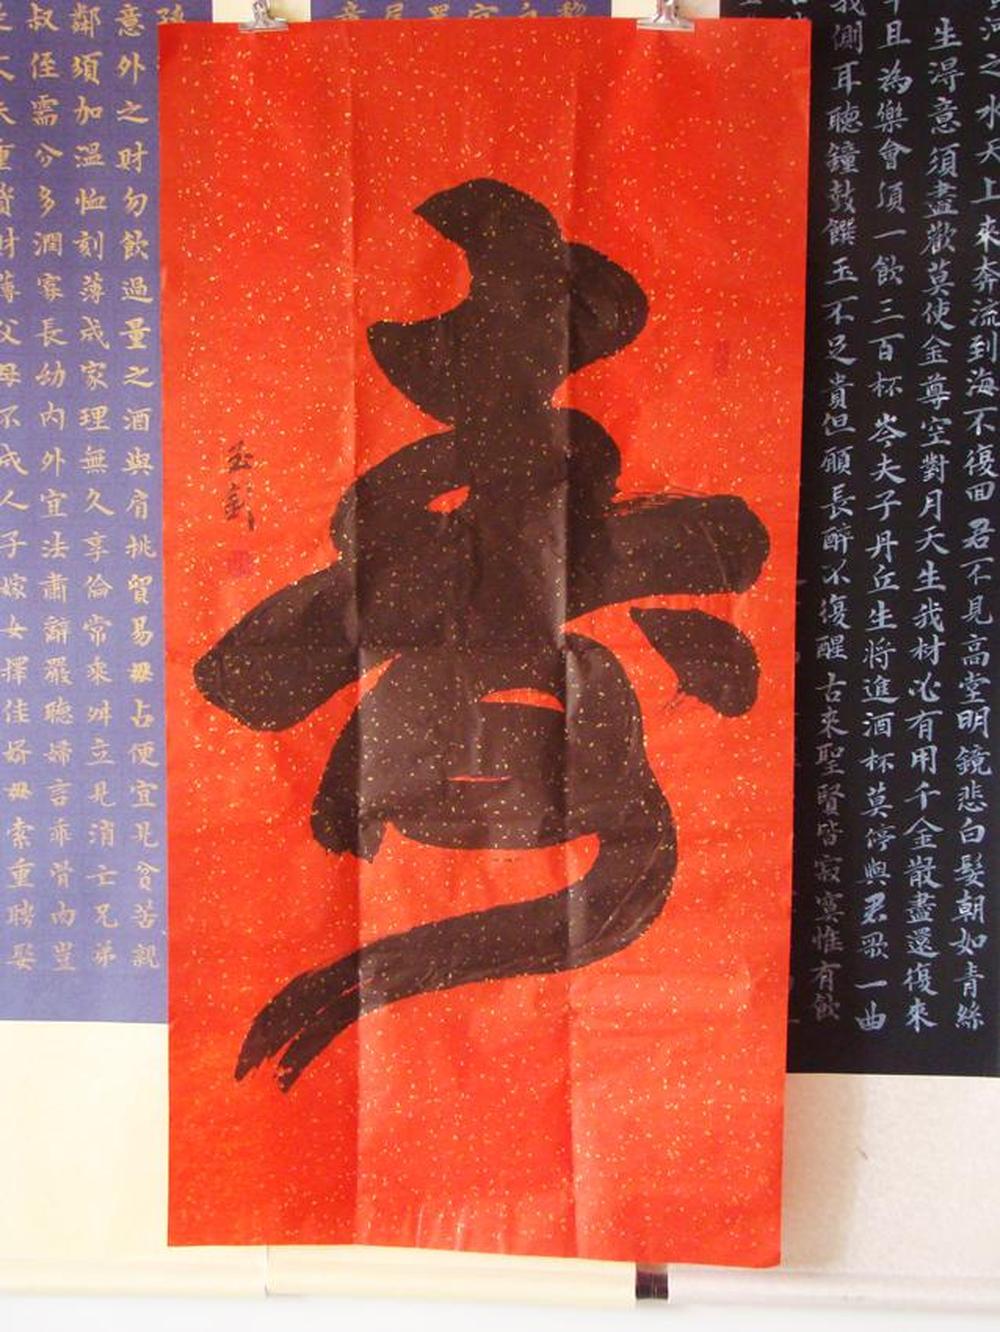 河之水天上來奔流到海不復回君不見高堂明鏡悲白髮朝如青絲
生得意須盡歡莫使金尊空對月天生我材必有用千金散盡還復來
且為樂會須一飲三百杯岑夫子丹丘生將進酒杯莫停與君歌一曲
我側耳聽鐘鼓饌玉不足貴但願長醉不復醒古來聖賢皆寂寞惟有飲
寿
意外之財勿飲過量之酒與肩挑貿易毋占便宜見貧苦親
鄰須加溫恤刻薄成家理無久享倫常乖舛立見消亡兄弟
叔侄需分多潤寡長幼內外宜法肅辭嚴聽婦言乖骨肉豈
丈夫重資財薄父母不成人子嫁女擇佳婿毋索重聘娶